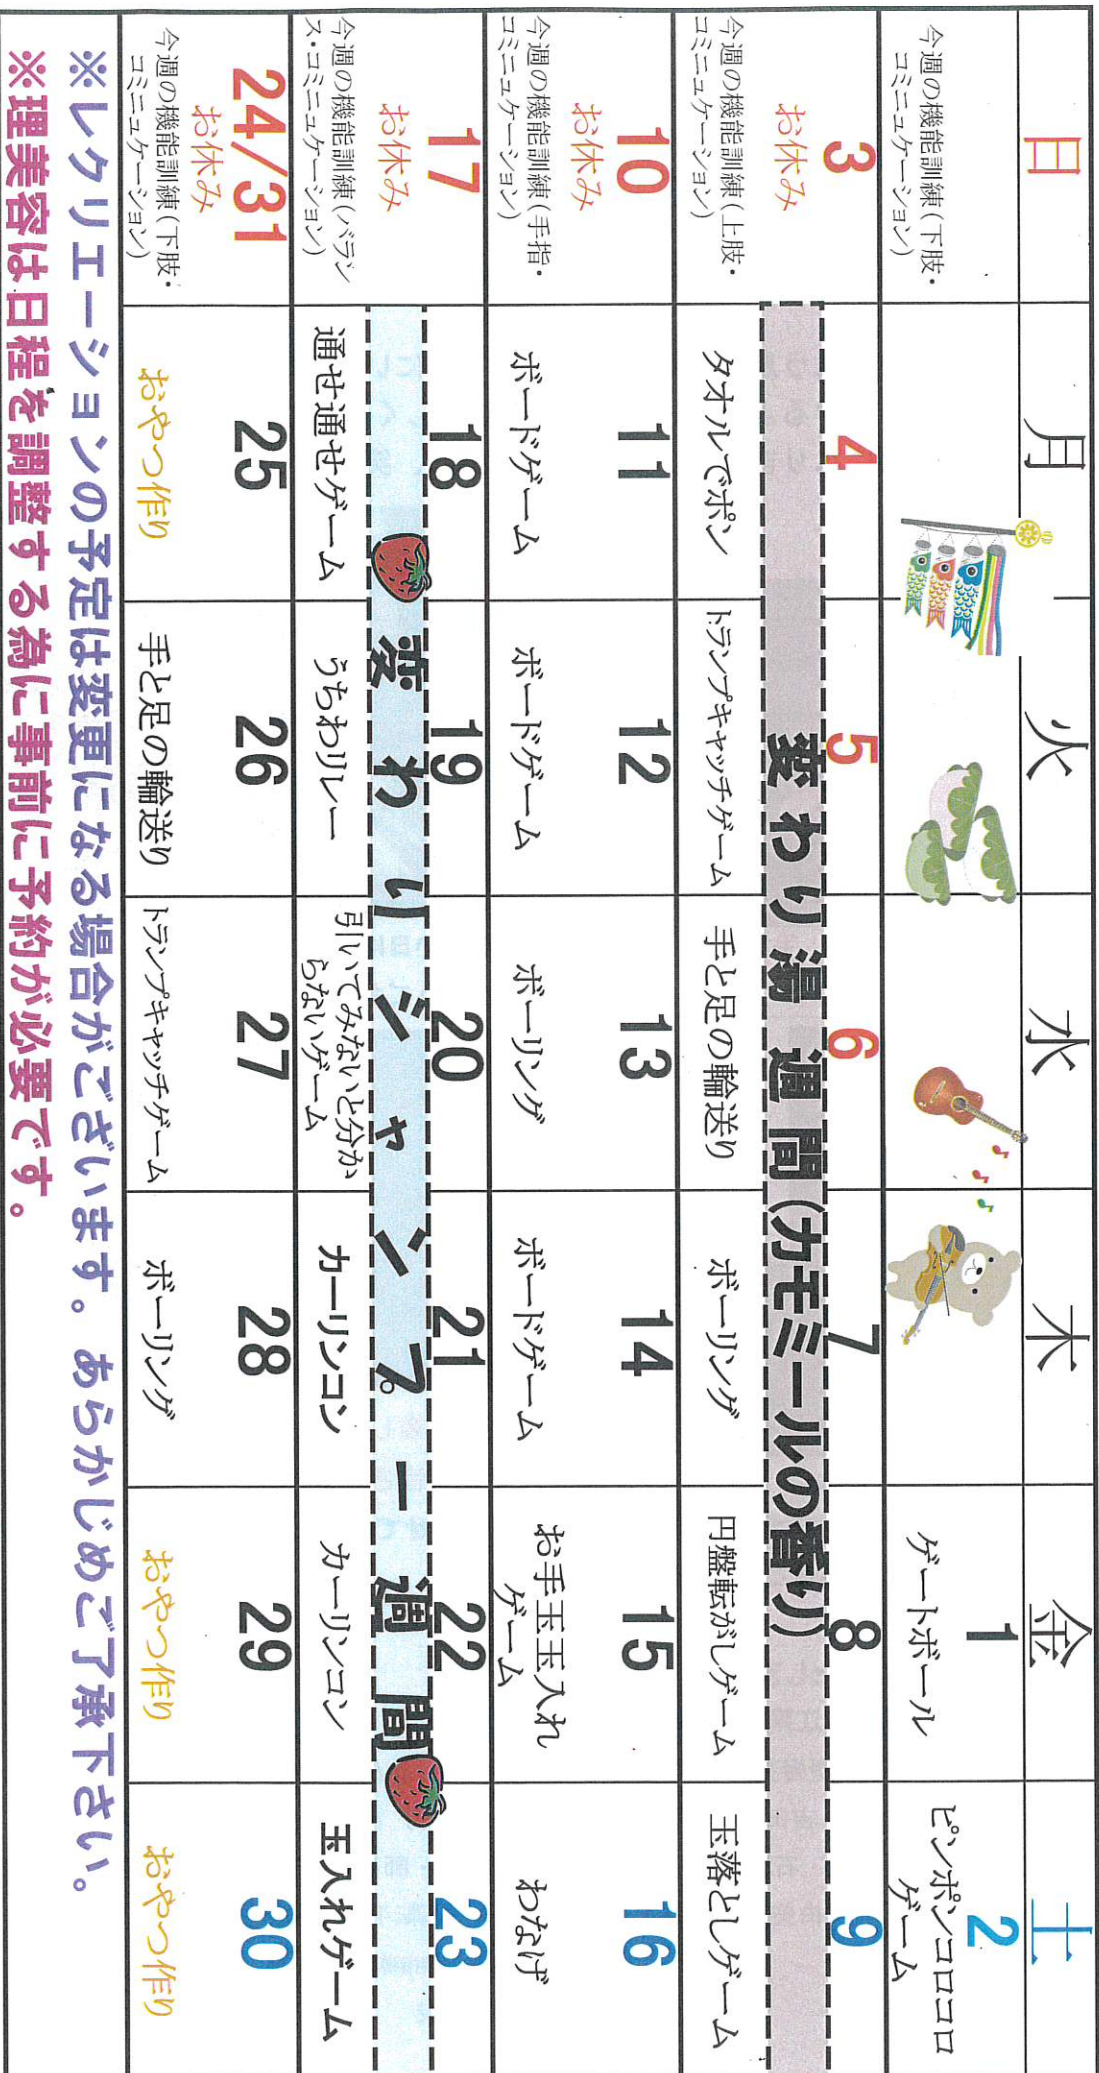 日 月 火 水 木 金 土
今週の機能訓練(下肢・
コミニュケーション)
1
ゲートボール
2
ピンポンコロコロ
ゲーム
3
お休み
今週の機能訓練(上肢・
コミニュケーション)
4
タオルでポン
5
トランプキャッチゲーム
6
手と足の輪送り
7
ボーリング
8
円盤転がしゲーム
9
玉落としゲーム
変わり湯週間(カモミールの香り)
10
お休み
今週の機能訓練(手指・
コミニュケーション)
11
ボードゲーム
12
ボードゲーム
13
ボーリング
14
ボードゲーム
15
お手玉玉入れ
ゲーム
16
わなげ
17
お休み
今週の機能訓練(バラン
ス・コミニュケーション)
18
通せ通せゲーム
19
うちわリレー
20
引いてみないと分か
らないゲーム
21
カーリンコン
22
カーリンコン
23
玉入れゲーム
変わりシャンプー週間
24/31
お休み
今週の機能訓練(下肢・
コミニュケーション)
25
おやつ作り
26
手と足の輪送り
27
トランプキャッチゲーム
28
ボーリング
29
おやつ作り
30
おやつ作り
※レクリエーションの予定は変更になる場合がございます。あらかじめご了承下さい。
※理美容は日程を調整する為に事前に予約が必要です。